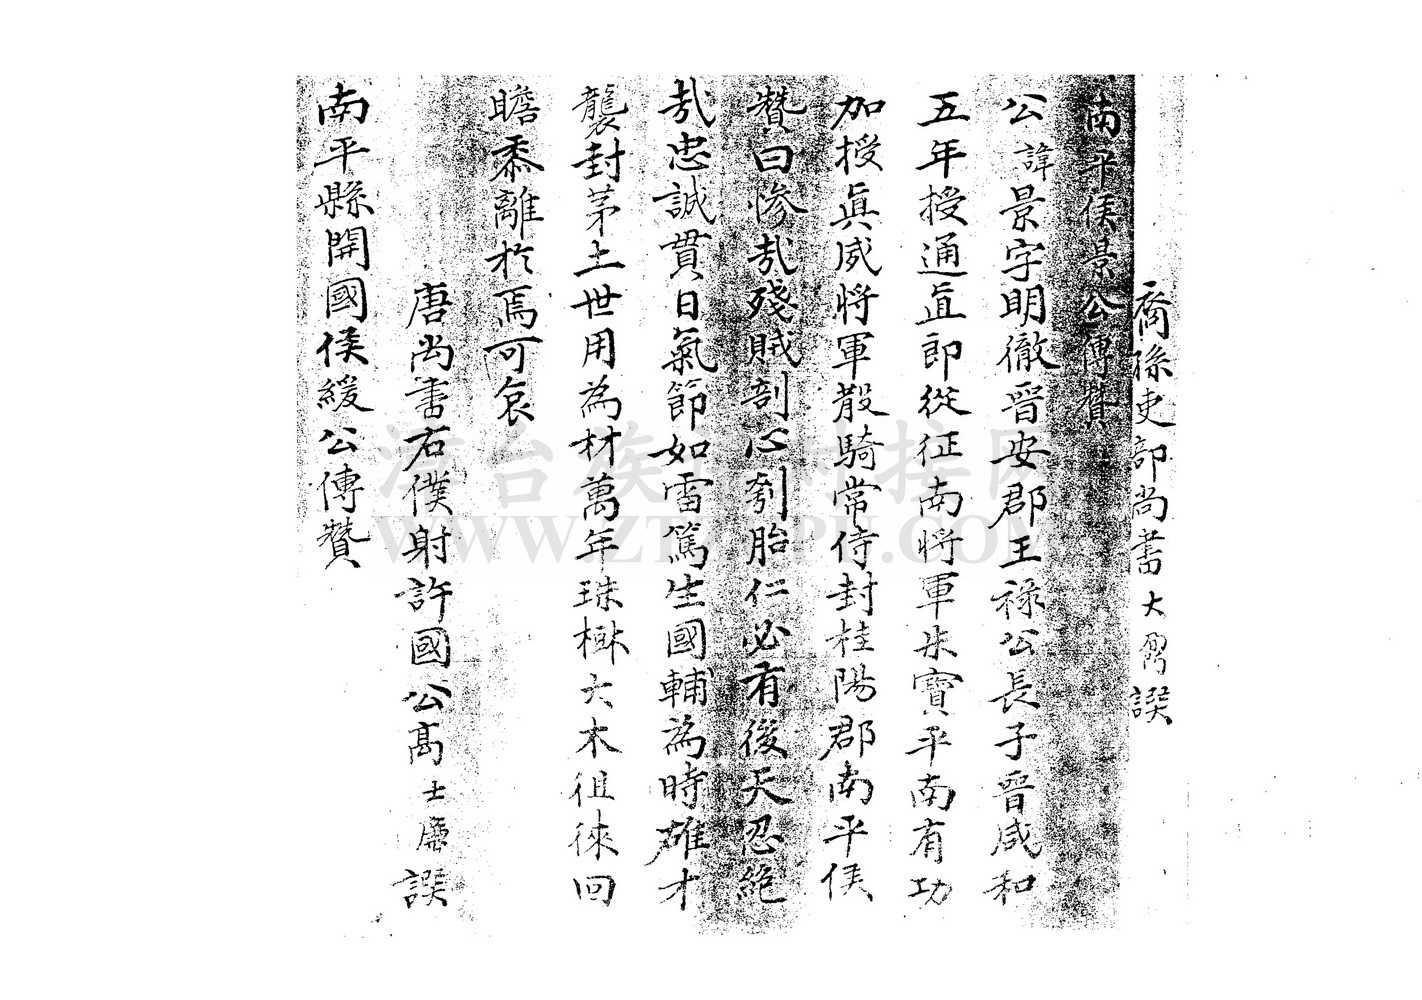 裔孫吏部尚書大爵譔
南平侯景公傳贊
公諱景字明徹晉安郡王祿公長子晉咸和
五年授通直郎從征南將軍朱寶平南有功
加授眞威將軍散騎常侍封桂陽郡南平侯
贊曰慘哉殘賊剖心刳胎仁必有後天忍絶
哉忠誠貫日氣節如雷篤生國輔為時雄才
襲封茅土世用為材萬年珠樹六木徂徠回
瞻黍離於焉可哀
唐尚書右僕射許國公高士廉譔
南平縣開國侯緩公傳贊
漳台族谱对接网
WWW.ZTZUPU.COM